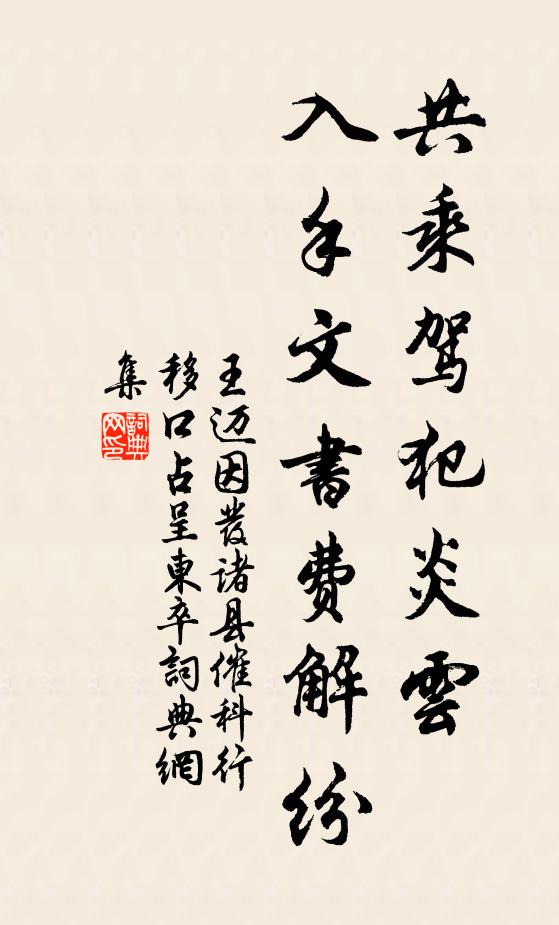 共乘驾犯炎雲
入手文書費解紛
王迈因發诸县催科行
移口占呈東卒詞典網
集
詞典網印